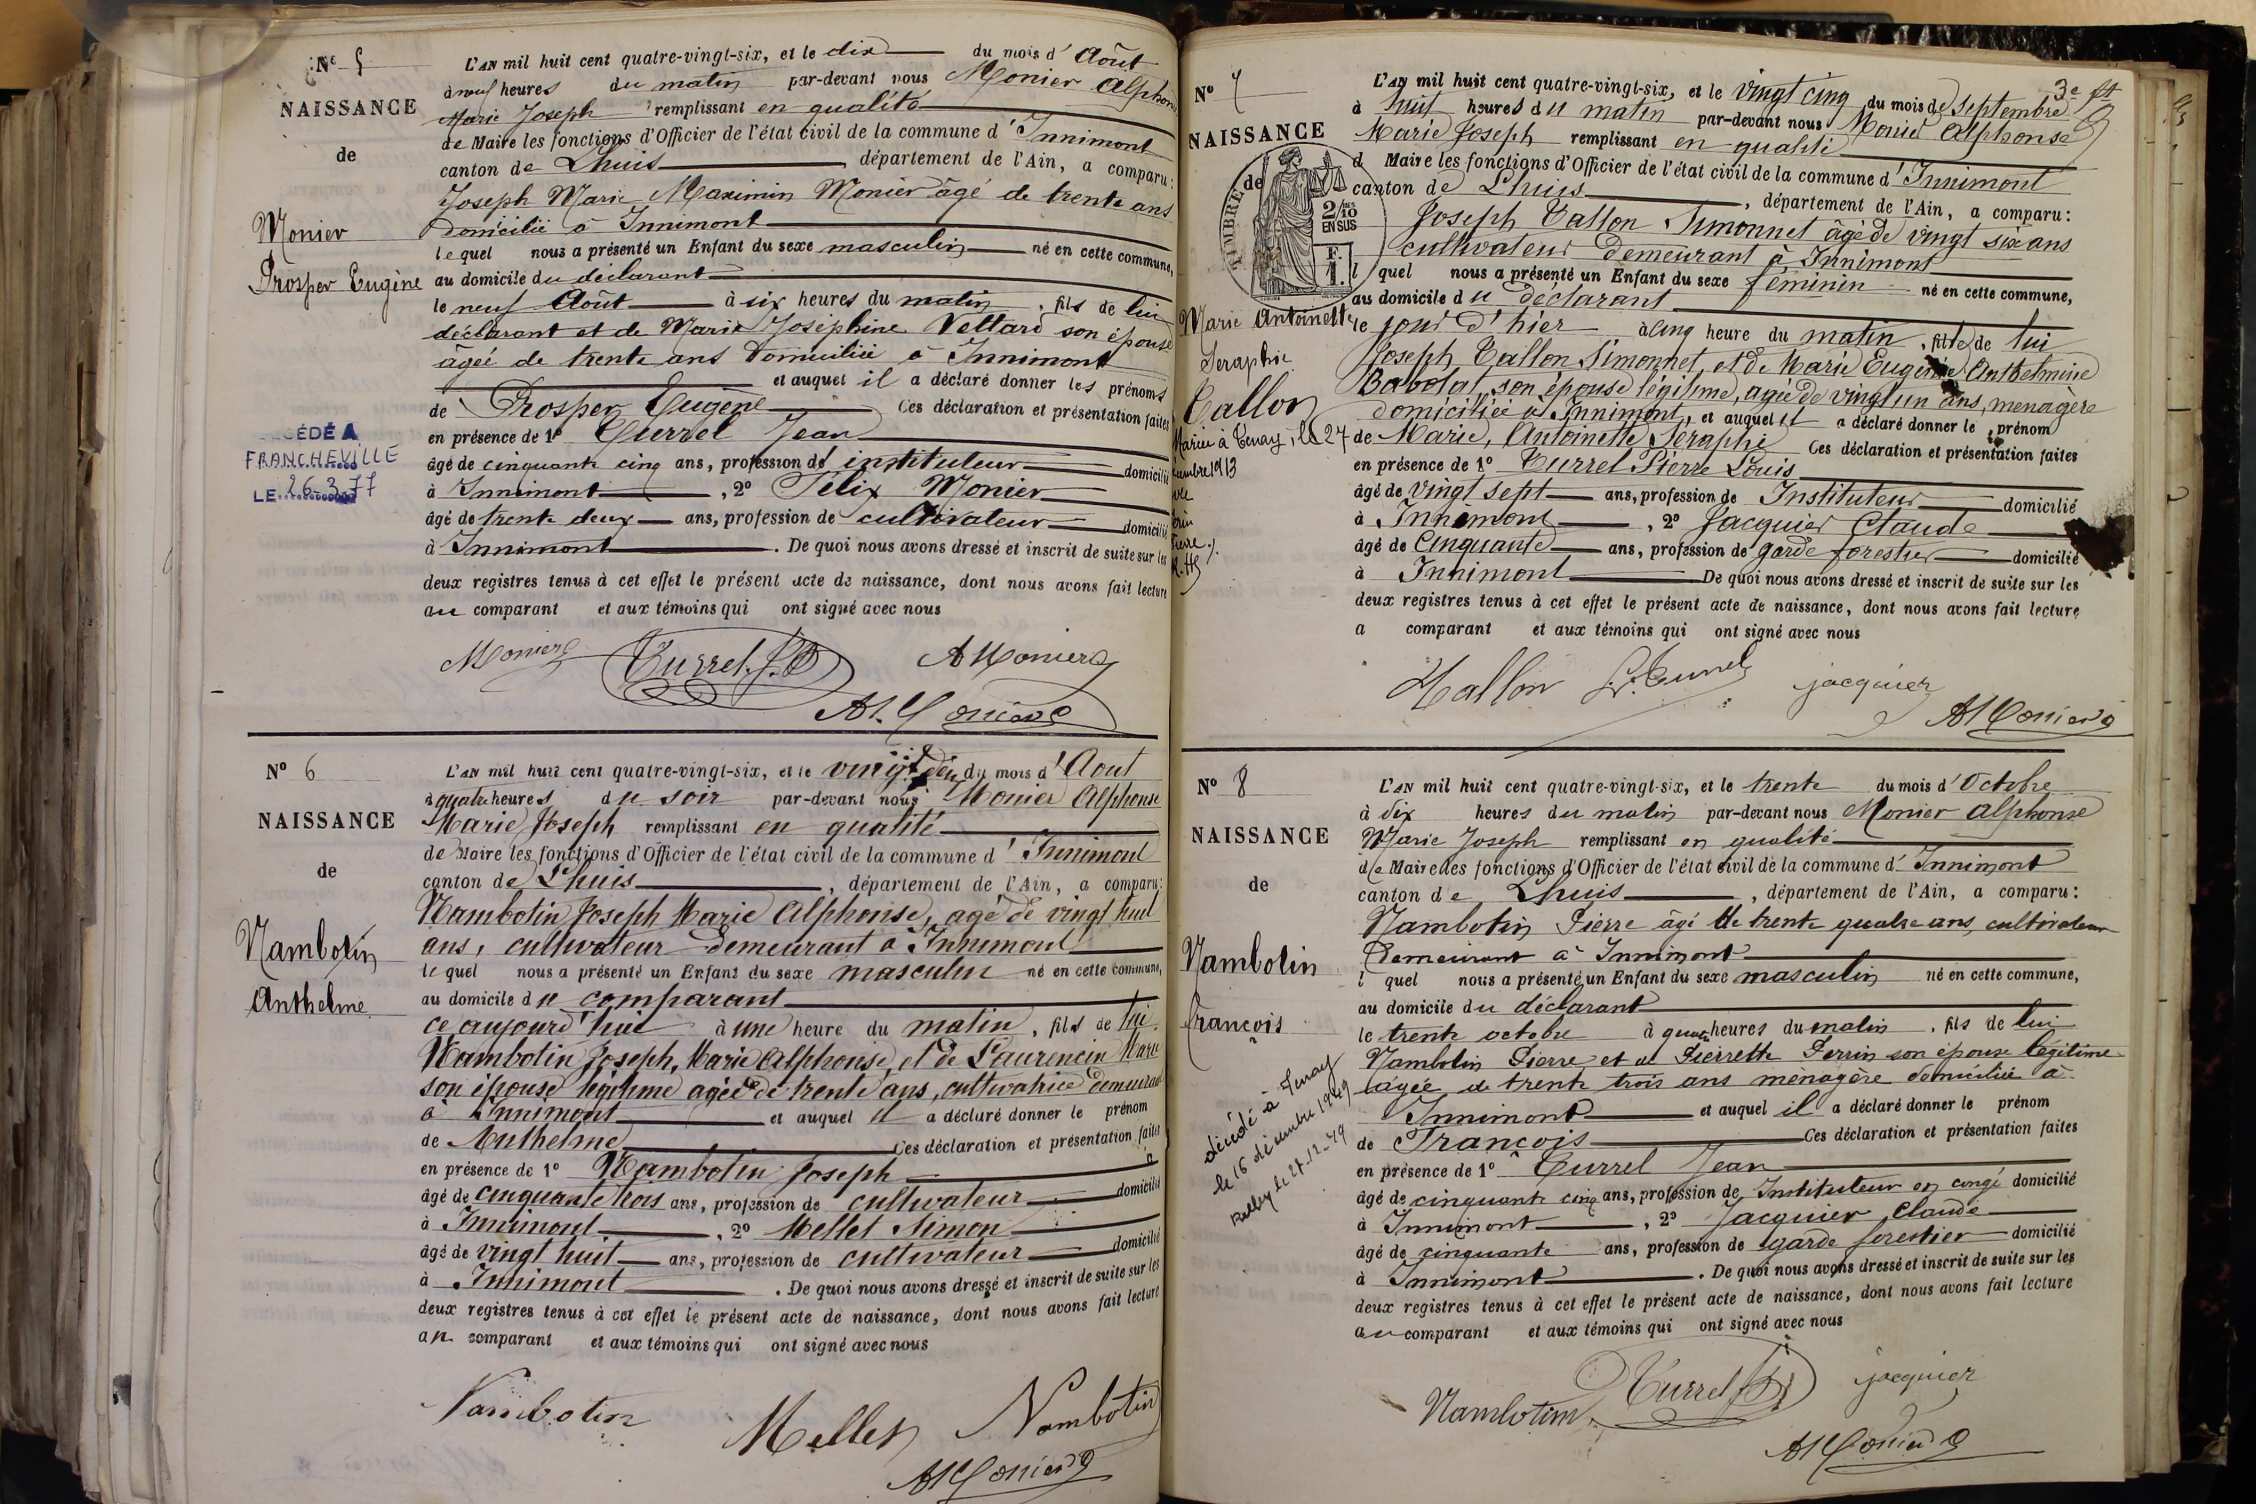 Nº 5
NAISSANCE
de
Monier
Prosper Eugène
DÉCÉDÉ A
FRANCHEVILLE
LE 26-3-77
L'AN mil huit cent quatre-vingt-six, et le dix du mois d'Août
à neuf heures du matin par-devant nous Monier Alphonse
Marie Joseph remplissant en qualité
de Maire les fonctions d'Officier de l'état civil de la commune d'Innimont
canton de Lhuis, département de l'Ain, a comparu :
Joseph Marie Maximin Monier âgé de trente ans
domicilié à Innimont
lequel nous a présenté un Enfant du sexe masculin né en cette commune,
au domicile du déclarant
le neuf Août à six heures du matin, fils de lui
déclarant et de Marie Joséphine Vettard son épouse
âgée de trente ans domiciliée à Innimont
et auquel il a déclaré donner les prénoms
de Prosper Eugène Ces déclaration et présentation faites
en présence de 1º Turrel Jean
âgé de cinquante cinq ans, profession de instituteur domicilié
à Innimont, 2º Félix Monier
âgé de trente deux ans, profession de cultivateur domicilié
à Innimont. De quoi nous avons dressé et inscrit de suite sur les
deux registres tenus à cet effet le présent acte de naissance, dont nous avons fait lecture
au comparant et aux témoins qui ont signé avec nous
Monier Turrel A Monier
A Monier
Nº 6
NAISSANCE
de
Nambotin
Anthelme
L'AN mil huit cent quatre-vingt-six, et le vingt du mois d'Aout
à quatre heures du soir par-devant nous Monier Alphonse
Marie Joseph remplissant en qualité
de Maire les fonctions d'Officier de l'état civil de la commune d'Innimont
canton de Lhuis, département de l'Ain, a comparu :
Nambotin Joseph Marie Alphonse, agé de vingt huit
ans, cultivateur demeurant à Innimont
lequel nous a présenté un Enfant du sexe masculin né en cette commune,
au domicile du comparant
ce aujourd'hui à une heure du matin, fils de lui
Nambotin Joseph, Marie Alphonse, et de Laurencin Marie
son épouse légitime agée de trente ans, cultivatrice demeurant
à Innimont et auquel il a déclaré donner le prénom
de Anthelme Ces déclaration et présentation faites
en présence de 1º Nambotin Joseph
âgé de cinquante trois ans, profession de cultivateur domicilié
à Innimont, 2º Mellet Simon
âgé de vingt huit ans, profession de cultivateur domicilié
à Innimont. De quoi nous avons dressé et inscrit de suite sur les
deux registres tenus à cet effet le présent acte de naissance, dont nous avons fait lecture
au comparant et aux témoins qui ont signé avec nous
Nambotin Mellet Nambotin
A Monier
3e
Nº 7
NAISSANCE
de
TIMBRE
2/10
EN SUS
F.
1.
Marie Antoinette
Seraphie
Tallon
Mariée à Tenay, le 27
L'AN mil huit cent quatre-vingt-six, et le vingt cinq du mois de septembre
à huit heures du matin par-devant nous Monier Alphonse
Marie Joseph remplissant en qualité
d Maire les fonctions d'Officier de l'état civil de la commune d'Innimont
canton de Lhuis, département de l'Ain, a comparu :
Joseph Tallon Simonnet âgé de vingt six ans
cultivateur demeurant à Innimont
l quel nous a présenté un Enfant du sexe féminin né en cette commune,
au domicile du déclarant
le jour d'hier à cinq heure du matin, fille de lui
Joseph Tallon Simonnet, et de Marie Eugénie Anthelmine
Babolat, son épouse légitime, agée de vingt un ans, menagère
domiciliée à Innimont, et auquel il a déclaré donner le prénom
de Marie, Antoinette Seraphie Ces déclaration et présentation faites
en présence de 1º Turrel Pierre Louis
âgé de vingt sept ans, profession de Instituteur domicilié
à Innimont, 2º Jacquier Claude
âgé de Cinquante ans, profession de garde forestier domicilié
à Innimont De quoi nous avons dressé et inscrit de suite sur les
deux registres tenus à cet effet le présent acte de naissance, dont nous avons fait lecture
a comparant et aux témoins qui ont signé avec nous
Tallon Turrel jacquier
A Monier
Nº 8
NAISSANCE
de
Nambotin
François
décédé à Tenay
le 16 décembre 1949
L'AN mil huit cent quatre-vingt-six, et le trente du mois d'Octobre
à dix heures du matin par-devant nous Monier Alphonse
Marie Joseph remplissant en qualité
de Maire les fonctions d'Officier de l'état civil de la commune d'Innimont
canton de Lhuis, département de l'Ain, a comparu :
Nambotin Pierre âgé de trente quatre ans, cultivateur
demeurant à Innimont
l quel nous a présenté un Enfant du sexe masculin né en cette commune,
au domicile du déclarant
le trente octobre à quatre heures du matin, fils de lui
Nambotin Pierre et de Pierrette Perrin son épouse légitime
agée de trente trois ans ménagère domiciliée à
Innimont et auquel il a déclaré donner le prénom
de François Ces déclaration et présentation faites
en présence de 1º Turrel Jean
âgé de cinquante cinq ans, profession de Instituteur en congé domicilié
à Innimont, 2º Jacquier Claude
âgé de cinquante ans, profession de garde forestier domicilié
à Innimont. De quoi nous avons dressé et inscrit de suite sur les
deux registres tenus à cet effet le présent acte de naissance, dont nous avons fait lecture
au comparant et aux témoins qui ont signé avec nous
Nambotin Turrel jacquier
A Monier